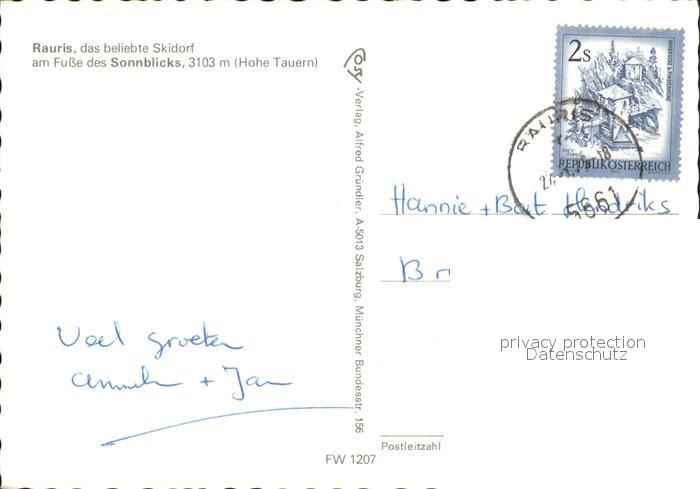 Rauris, das beliebte Skidorf
am Fuße des Sonnblicks, 3103 m (Hohe Tauern)
Cosy-Verlag, Alfred Gründler, A-5013 Salzburg, Münchner Bundesstr. 156
2s
REPUBLIK ÖSTERREICH
RAURIS
5661
Hannie + Bart Hendriks
Veel groeten
+ Jan
privacy protection
Datenschutz
Postleitzahl
FW 1207